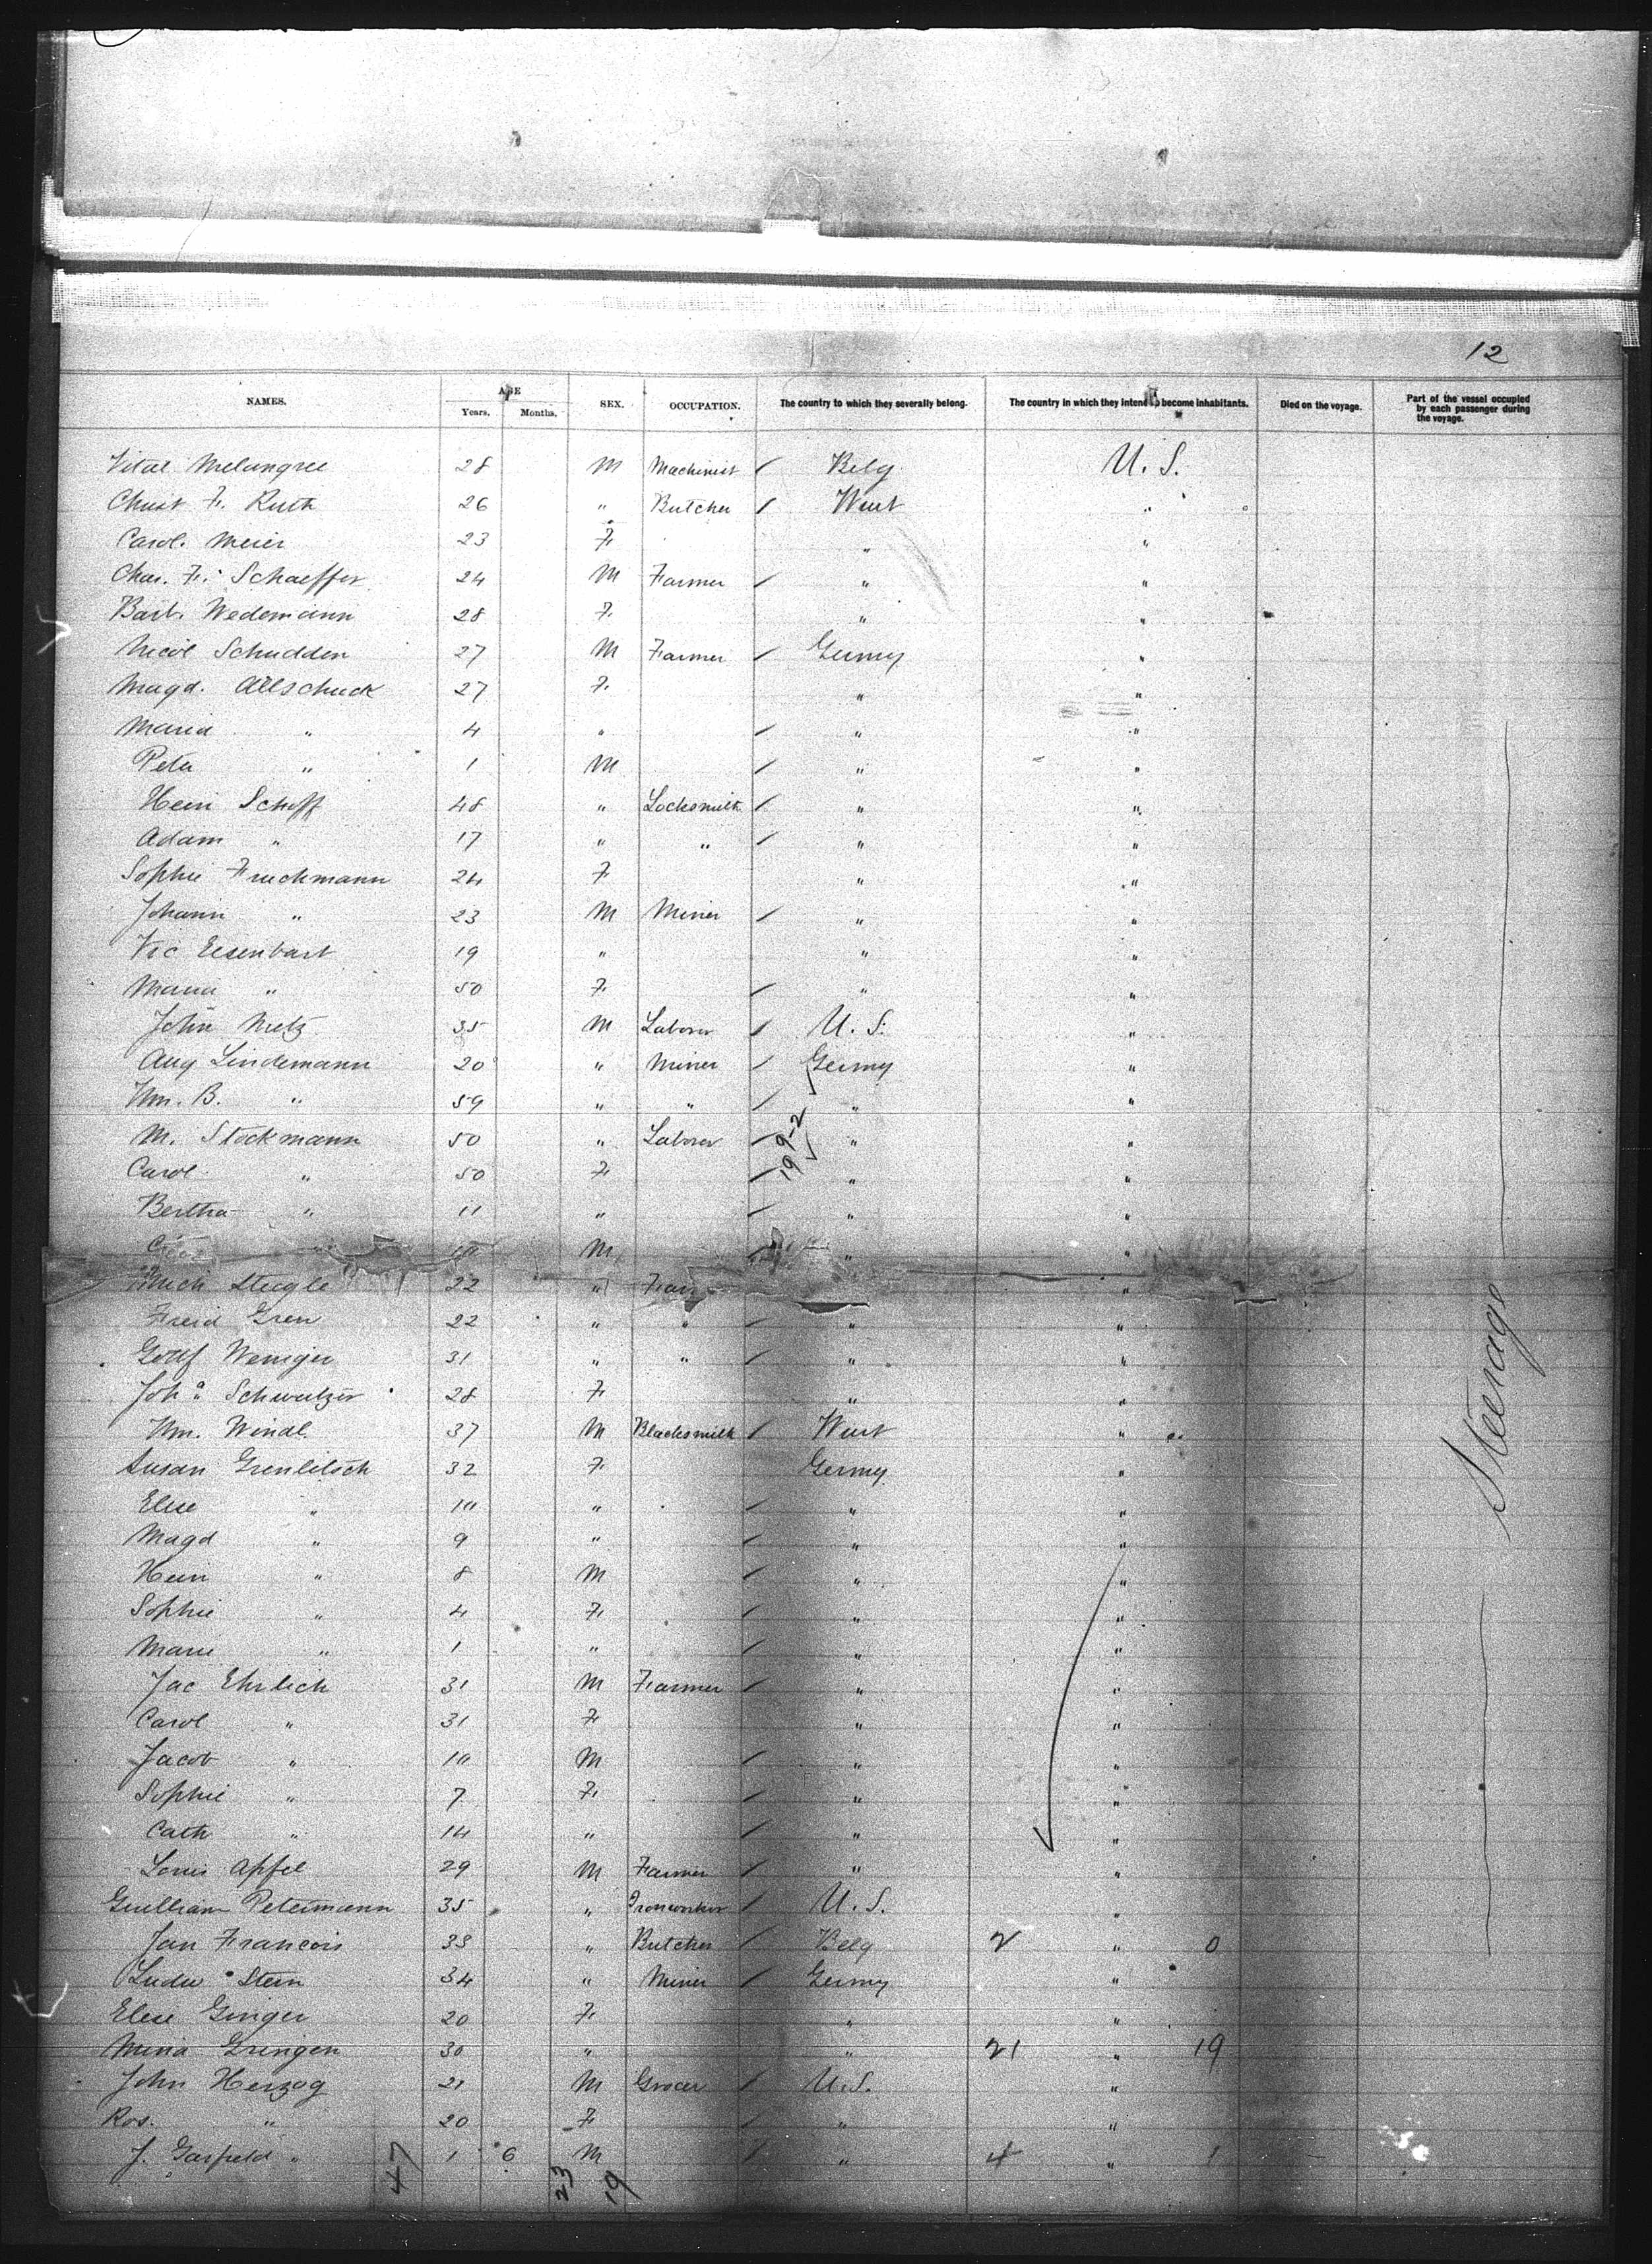 12
NAMES. AGE Years. Months. SEX. OCCUPATION. The country to which they severally belong. The country in which they intend to become inhabitants. Died on the voyage. Part of the vessel occupied by each passenger during the voyage.
Vital Melangree 28 M Machinist / Belg U. S.
Christ F. Ruth 26 " Butcher / Wurt "
Carol. Meier 23 F. " "
Chas. Fr. Schaeffer 24 M Farmer / " "
Barb. Wedemann 28 F. " "
Nicol Schudden 27 M Farmer / Germy "
Magd. Allschuck 27 F. " "
Maria " 4 " / " "
Peter " 1 M / " "
Hein Schoff 48 " Locksmith / " "
Adam " 17 " " / " "
Sophie Fruchmann 24 F " "
Johann " 23 M Miner / " "
Vic Eisenbart 19 " " "
Maria " 50 F. / " "
John Metz 35 M Laborer / U. S. "
Aug Lindemann 20 " Miner / Germy "
Wm. B. " 59 " " / " "
M. Stockmann 50 " Laborer / " "
19 9-2
Carol " 50 F / " "
Bertha " 11 " / " "
" M " "
Steegle 22 " "
Freid Gren 22 " " / " "
Gottf Weniger 31 " " / " "
Joh" Schweitzer 28 F. " "
Wm. Windl. 37 M Blacksmith / Wurt "
Susan Grenlitsch 32 F. Germy "
Elise " 10 " / " "
Magd " 9 " / " "
Hein " 8 M / " "
Sophie " 4 F. / " "
Marie " 1 " / " "
Jac Ehrlich 31 M Farmer / " "
Carol " 31 F " "
Jacob " 10 M / " "
Sophie " 7 F. / " "
Cath " 14 " / " "
Louis Apfel 29 M Farmer / " "
Guilliam Petermann 35 " Ironworker / U. S. "
Jan Francois 33 " Butcher / Belg 2 " 0
Ludw Stein 34 " Miner / Germy "
Elise Ginger 20 F. " "
Mina Gringen 30 " " 21 " 19
John Herzog 21 M Grocer / U.S. "
Ros. " 20 F / " "
J. Garfield " 1 6 M / " 4 " 1
47 23 19
Steerage